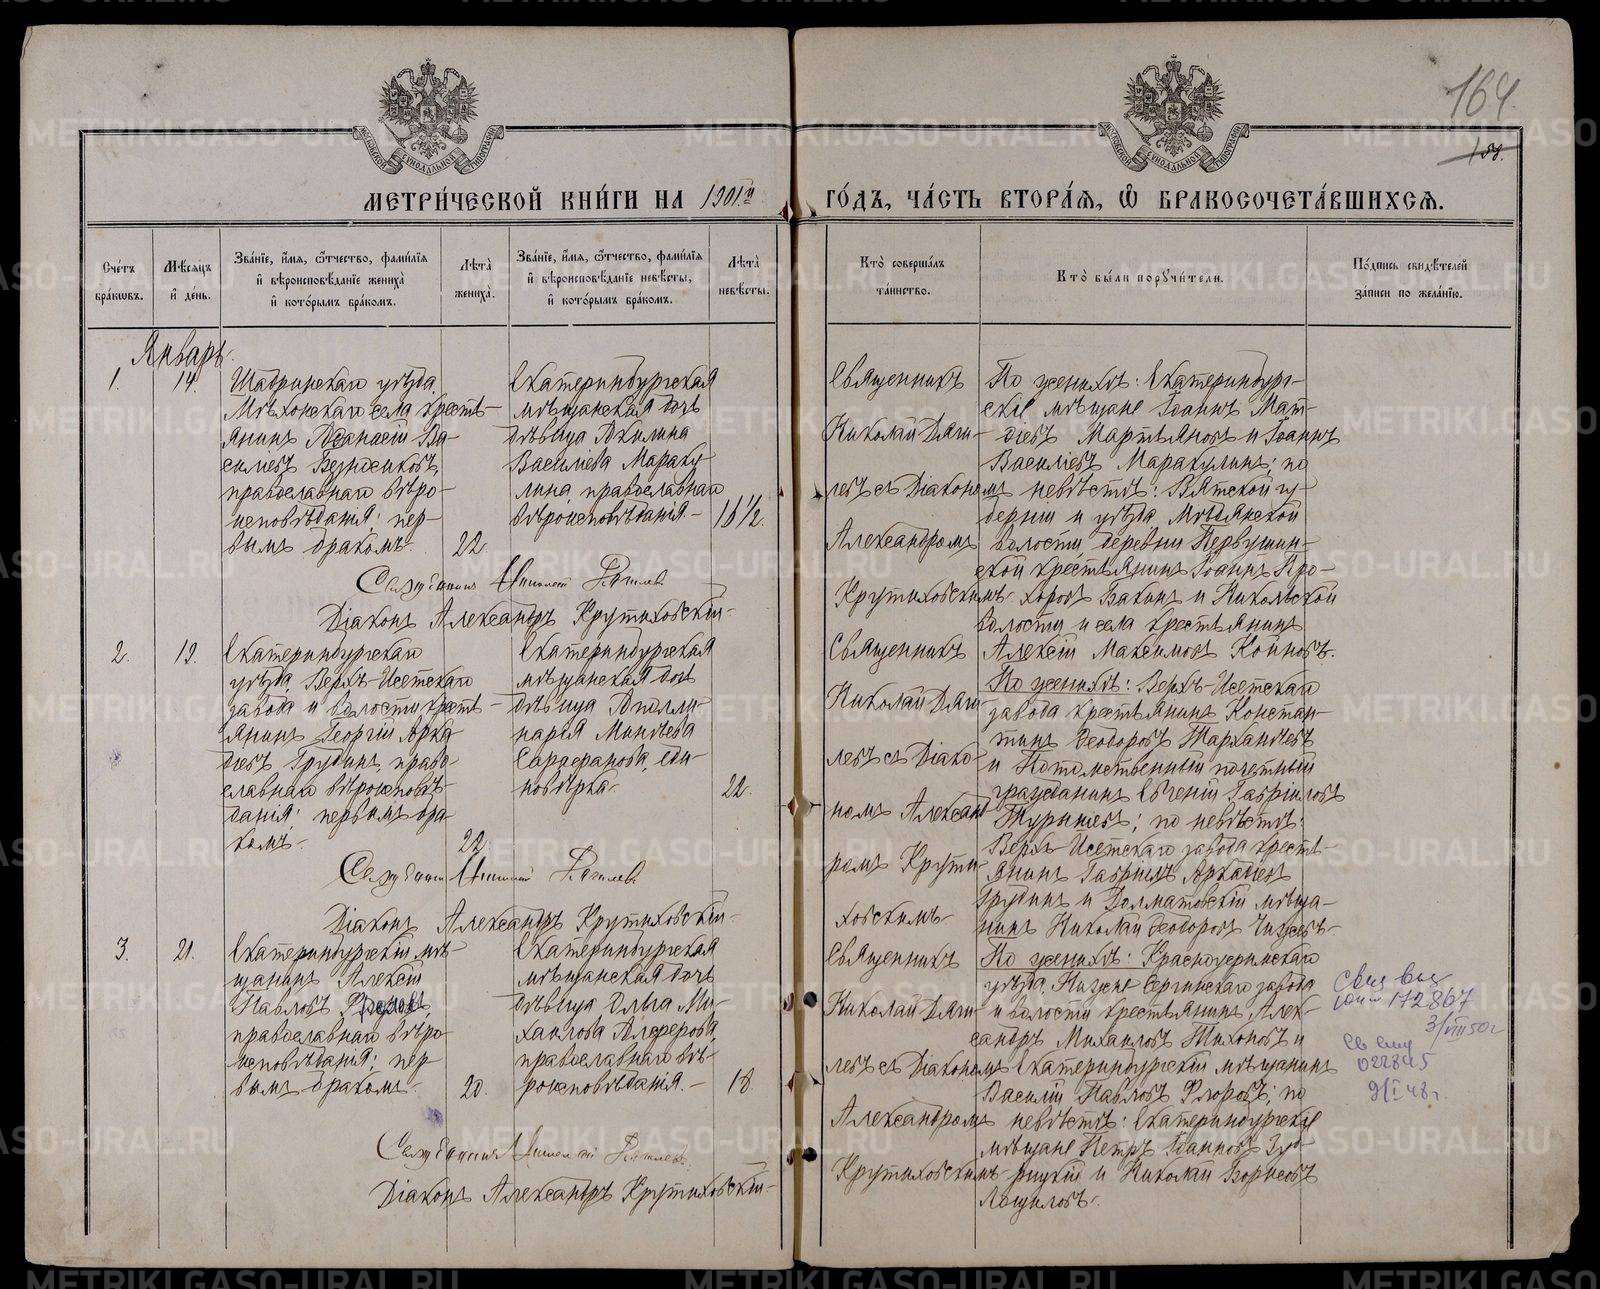 164
МЕТРИ́ЧЕСКОЙ КНИ́ГИ НА 1901й ГО́ДЪ, ЧА́СТЬ ВТОРА́Я, Ѽ БРАКОСОЧЕТА́ВШИХСЯ.
Сче́тъ бра́кѡвъ.
Мѣ́сяцъ и҆ де́нь.
Зва́нїе, и҆́мя, ѻ҆́тчество, фами́лїя и҆ вѣроисповѣ́данїе жениха̀ и҆ кото́рымъ бра́комъ.
Лѣта̀ жениха̀.
Зва́нїе, и҆́мя, ѻ҆́тчество, фами́лїя и҆ вѣроисповѣ́данїе невѣ́сты, и҆ кото́рымъ бра́комъ.
Лѣта̀ невѣ́сты.
Кто̀ соверша́лъ та́инство.
Кто̀ бы́ли порꙋчи́тели.
По́дпись свидѣ́телей за́писи по жела́нїю.
Январь.
1.
14.
Шадринскаго уѣзда
Мѣхонскаго села кресть-
янинъ Аѳанасій Ва-
сильевъ Безносиковъ,
православнаго вѣро-
исповѣданія; пер-
вымъ бракомъ.
22.
Екатеринбургская
мѣщанская дочь
дѣвица Акилина
Василіева Мараку-
лина, православнаго
вѣроисповѣданія.-
16½.
Священникъ
Николай Дяги-
левъ съ Діакономъ
Александромъ
Крутиховскимъ.
По женихѣ: Екатеринбург-
скіе мѣщане Іоаннъ Мат-
ѳіевъ Мартьяновъ и Іоаннъ
Василіевъ Маракулинъ; по
невѣстѣ: Вятской гу-
берніи и уѣзда Мѣдянской
волости деревни Первушин-
ской крестьянинъ Іоаннъ Про-
хоровъ Бакинъ и Никольской
волости и села крестьянинъ
Алексій Максимовъ Койновъ.
Священникъ Николай Дягилевъ
Діаконъ Александръ Крутиховскій.
2.
19.
Екатеринбургскаго
уѣзда, Верхъ-Исетскаго
завода и волости кресть-
янинъ Георгій Арка-
діевъ Грудинъ, право-
славнаго вѣроисповѣ-
данія; первымъ бра-
комъ.
22.
Екатеринбургская
мѣщанская дочь
дѣвица Аполли-
нарія Минѣева
Сарафанова, еди-
новѣрка.
22.
Священникъ
Николай Дяги-
левъ съ Діако-
номъ Александ-
ромъ Крути-
ховскимъ.
По женихѣ: Верхъ-Исетскаго
завода крестьянинъ Констан-
тинъ Ѳеодоровъ Тархановъ
и Потомственный почетный
гражданинъ Евгеній Гавріиловъ
; по невѣстѣ:
Верхъ-Исетскаго завода кресть-
янинъ Гавріилъ Аркадіевъ
Грудинъ и Долматовскій мѣща-
нинъ Николай Ѳеодоровъ Чижевъ.
Священникъ Николай Дягилевъ
Діаконъ Александръ Крутиховскій.
3.
21.
Екатеринбургскій мѣ-
щанинъ Алексій
Павловъ Флоровъ,
православнаго вѣро-
исповѣданія; пер-
вымъ бракомъ.
20.
Екатеринбургская
мѣщанская дочь
дѣвица Ольга Ми-
хаилова Алферова,
православнаго вѣ-
роисповѣданія.-
18.
Священникъ
Николай Дяги-
левъ съ Діакономъ
Александромъ
Крутиховскимъ.
По женихѣ: Красноуфимскаго
уѣзда, Нижне-Сергинскаго завода
и волости крестьянинъ Алек-
сандръ Михаиловъ Тихоновъ и
Екатеринбургскій мѣщанинъ
Василій Павловъ Флоровъ; по
невѣстѣ: Екатеринбургскіе
мѣщане Петръ Іоанновъ Зуб-
рицкій и Николай Борисовъ
Лощиловъ.
172867
3/VIII 50г
022845
9/I 48г.
Священникъ Николай Дягилевъ
Діаконъ Александръ Крутиховскій.
METRIKI.GASO-URAL.RU